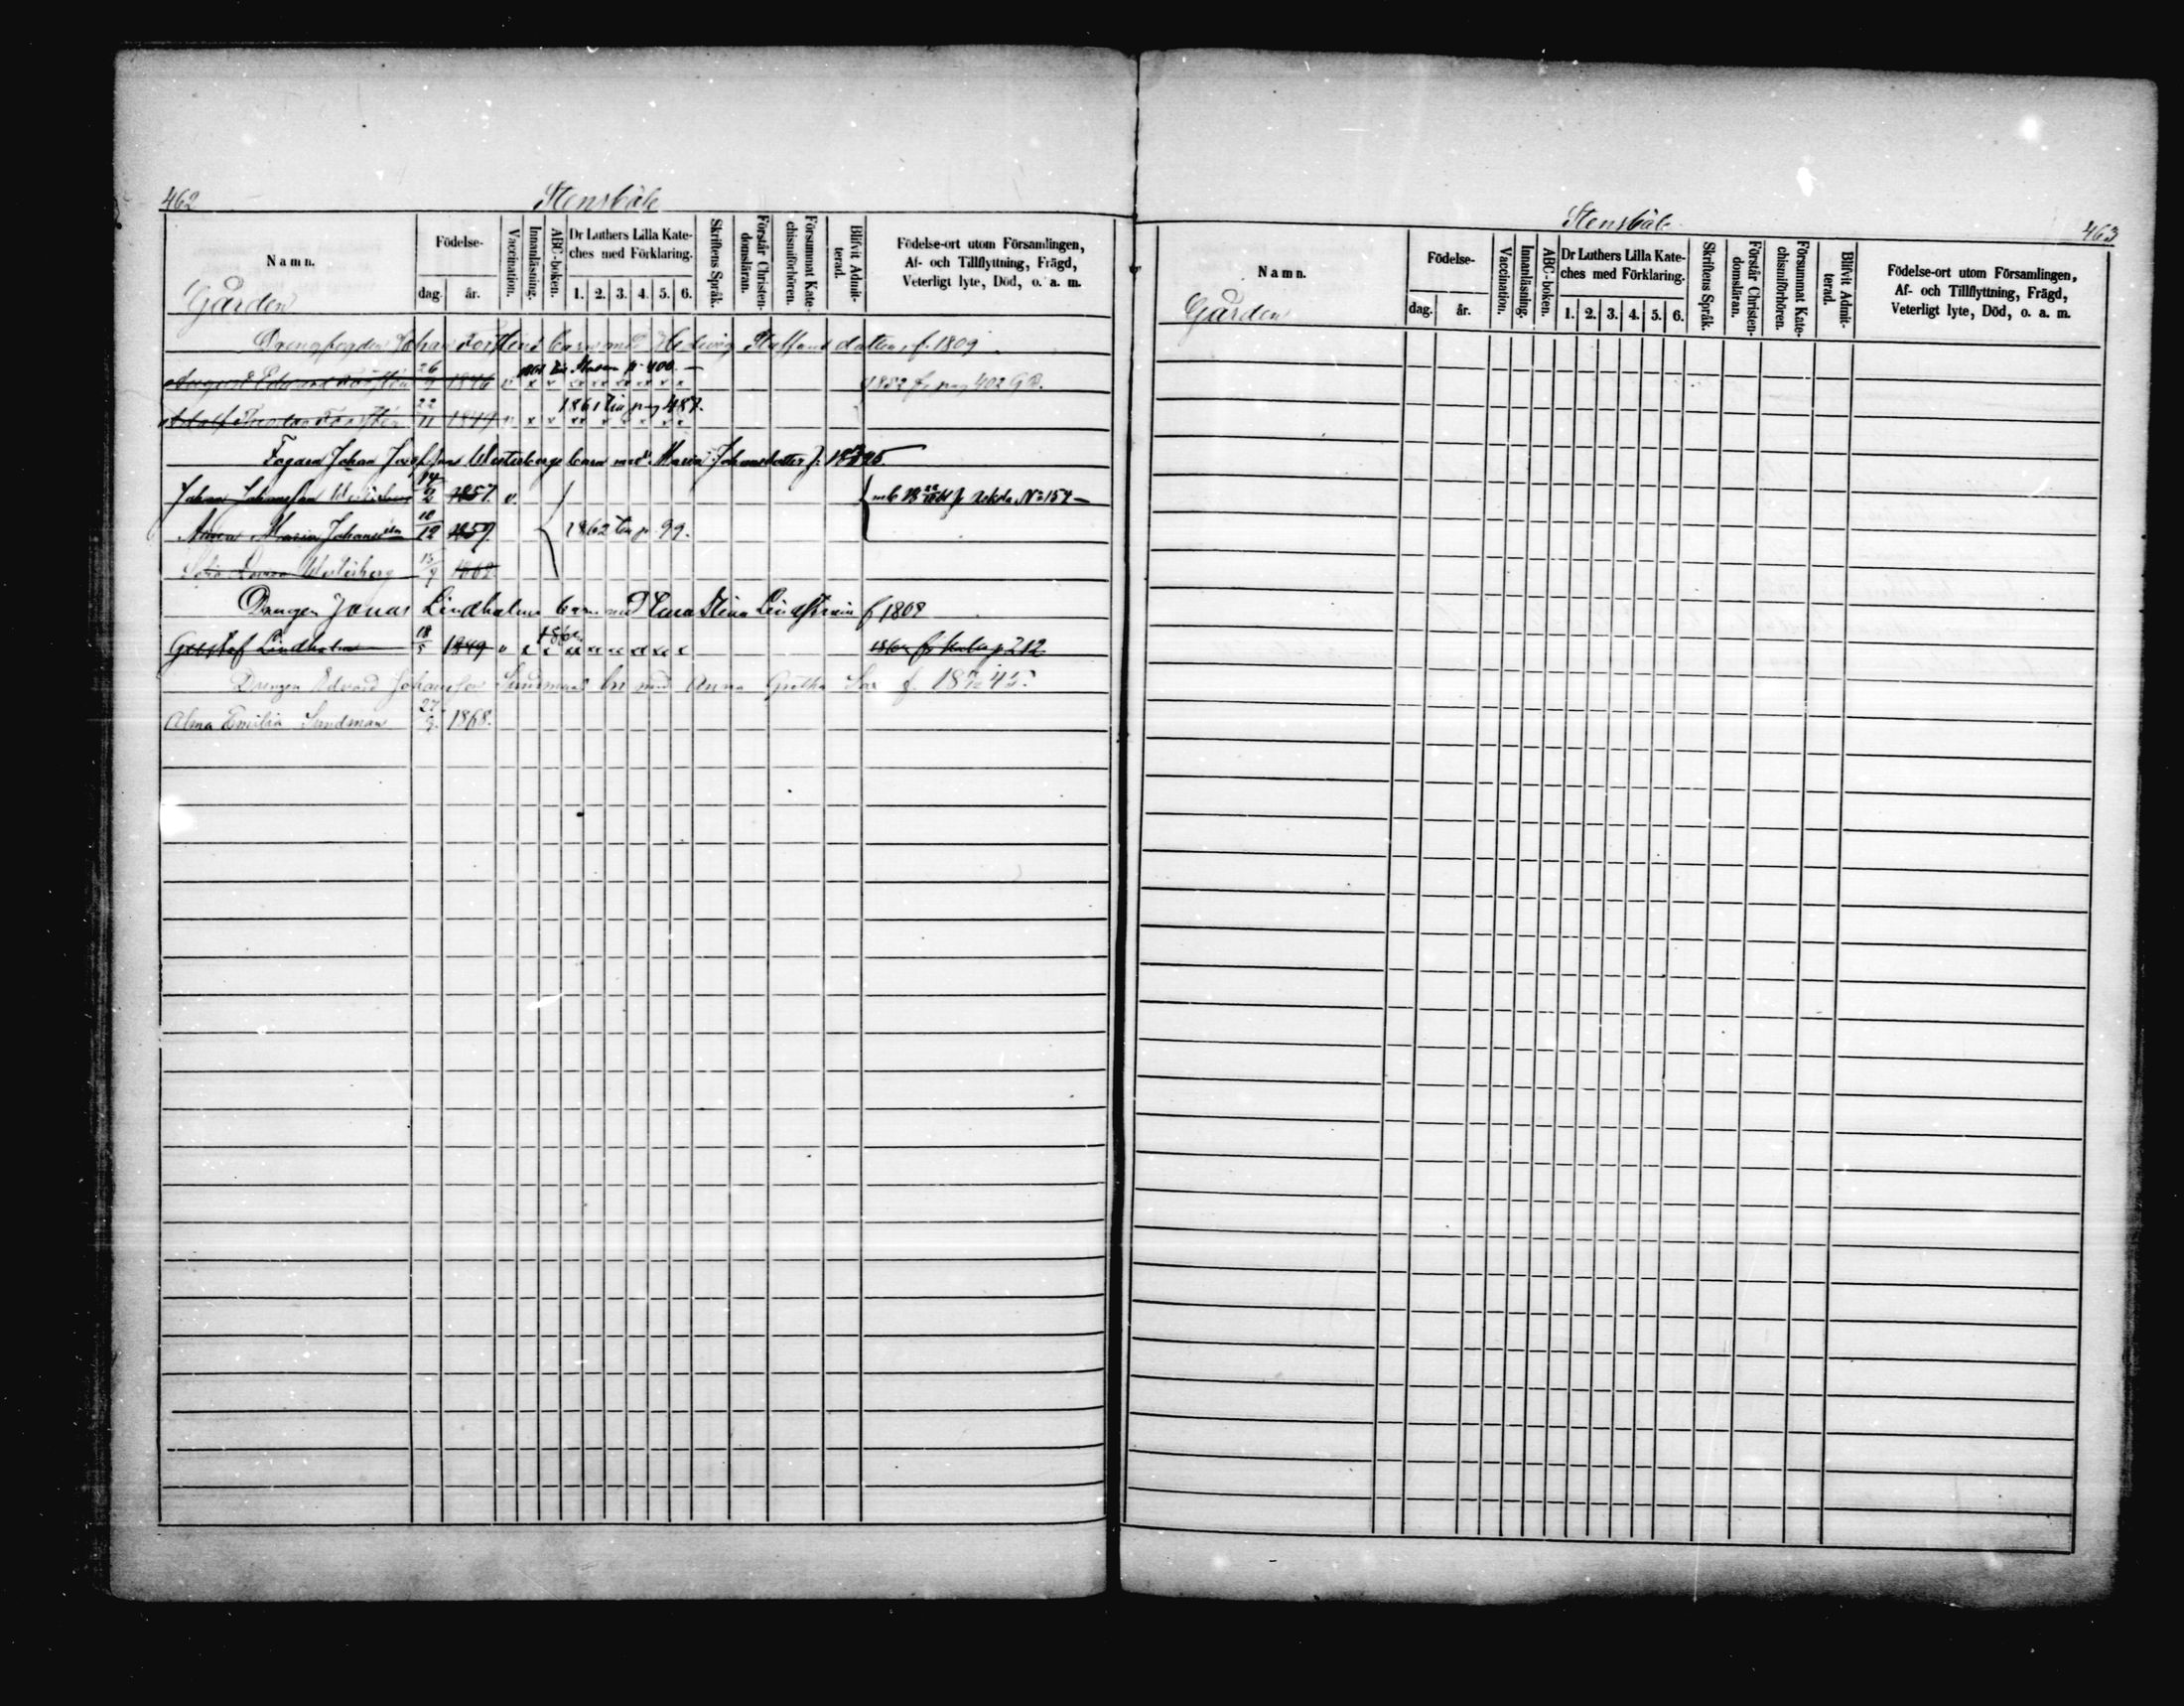 462
Stensböle
Namn.
Födelse-
dag.
år.
Vaccination.
Innanläsning.
ABC-boken.
Dr Luthers Lilla Kate-
ches med Förklaring.
1. 2. 3. 4. 5. 6.
Skriftens Språk.
Förstår Christen-
domsläran.
Försummat Kate-
chismiförhören.
Blifvit Admit-
terad.
Födelse-ort utom Församlingen,
Af- och Tillflyttning, Frägd,
Veterligt lyte, Död, o. a. m.
Gården
Drengfogden Johan Forsténs barn med Hedvig Staffans dotter f. 1809
August Edvard Forstén 26 1846 v x x p 400. 1852 fr pag 402 G B.
Adolf Theodor Forstén 22/11 1849 v x v 1861 till pag 487.
Fogden Johan Westerbergs barn med Maria Johansdotter f.
Johan Johansson Westerberg 14/2 1857. v N:o 154
Anna Maria Johansdr 10/12 1859 1862 till p. 99.
Sofia Lovisa Westerberg 15/9
Drengen Jonas Lindholms barn med Stina f 1808
Gustaf Lindholm 18/5 1849 v x x xx xx xx x xx x p 212
Drengen Edvard Johansson Sundmans bn med Anna Greta f. 18 45.
Alma Emilia Sundman 27/9. 1868.
Stensböle
463
Namn.
Födelse-
dag.
år.
Vaccination.
Innanläsning.
ABC-boken.
Dr Luthers Lilla Kate-
ches med Förklaring.
1. 2. 3. 4. 5. 6.
Skriftens Språk.
Förstår Christen-
domsläran.
Försummat Kate-
chismiförhören.
Blifvit Admit-
terad.
Födelse-ort utom Församlingen,
Af- och Tillflyttning, Frägd,
Veterligt lyte, Död, o. a. m.
Gården